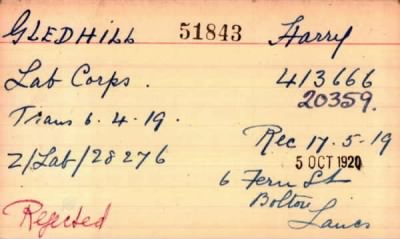 GLEDHILL 51843 Harry
Lab Corps. 413666
20359.
Trans 6.4.19.
Rec 17.5-19
Z/Lab/28276 5 OCT 1920
6 Fern St
Bolton
Rejected Lancs